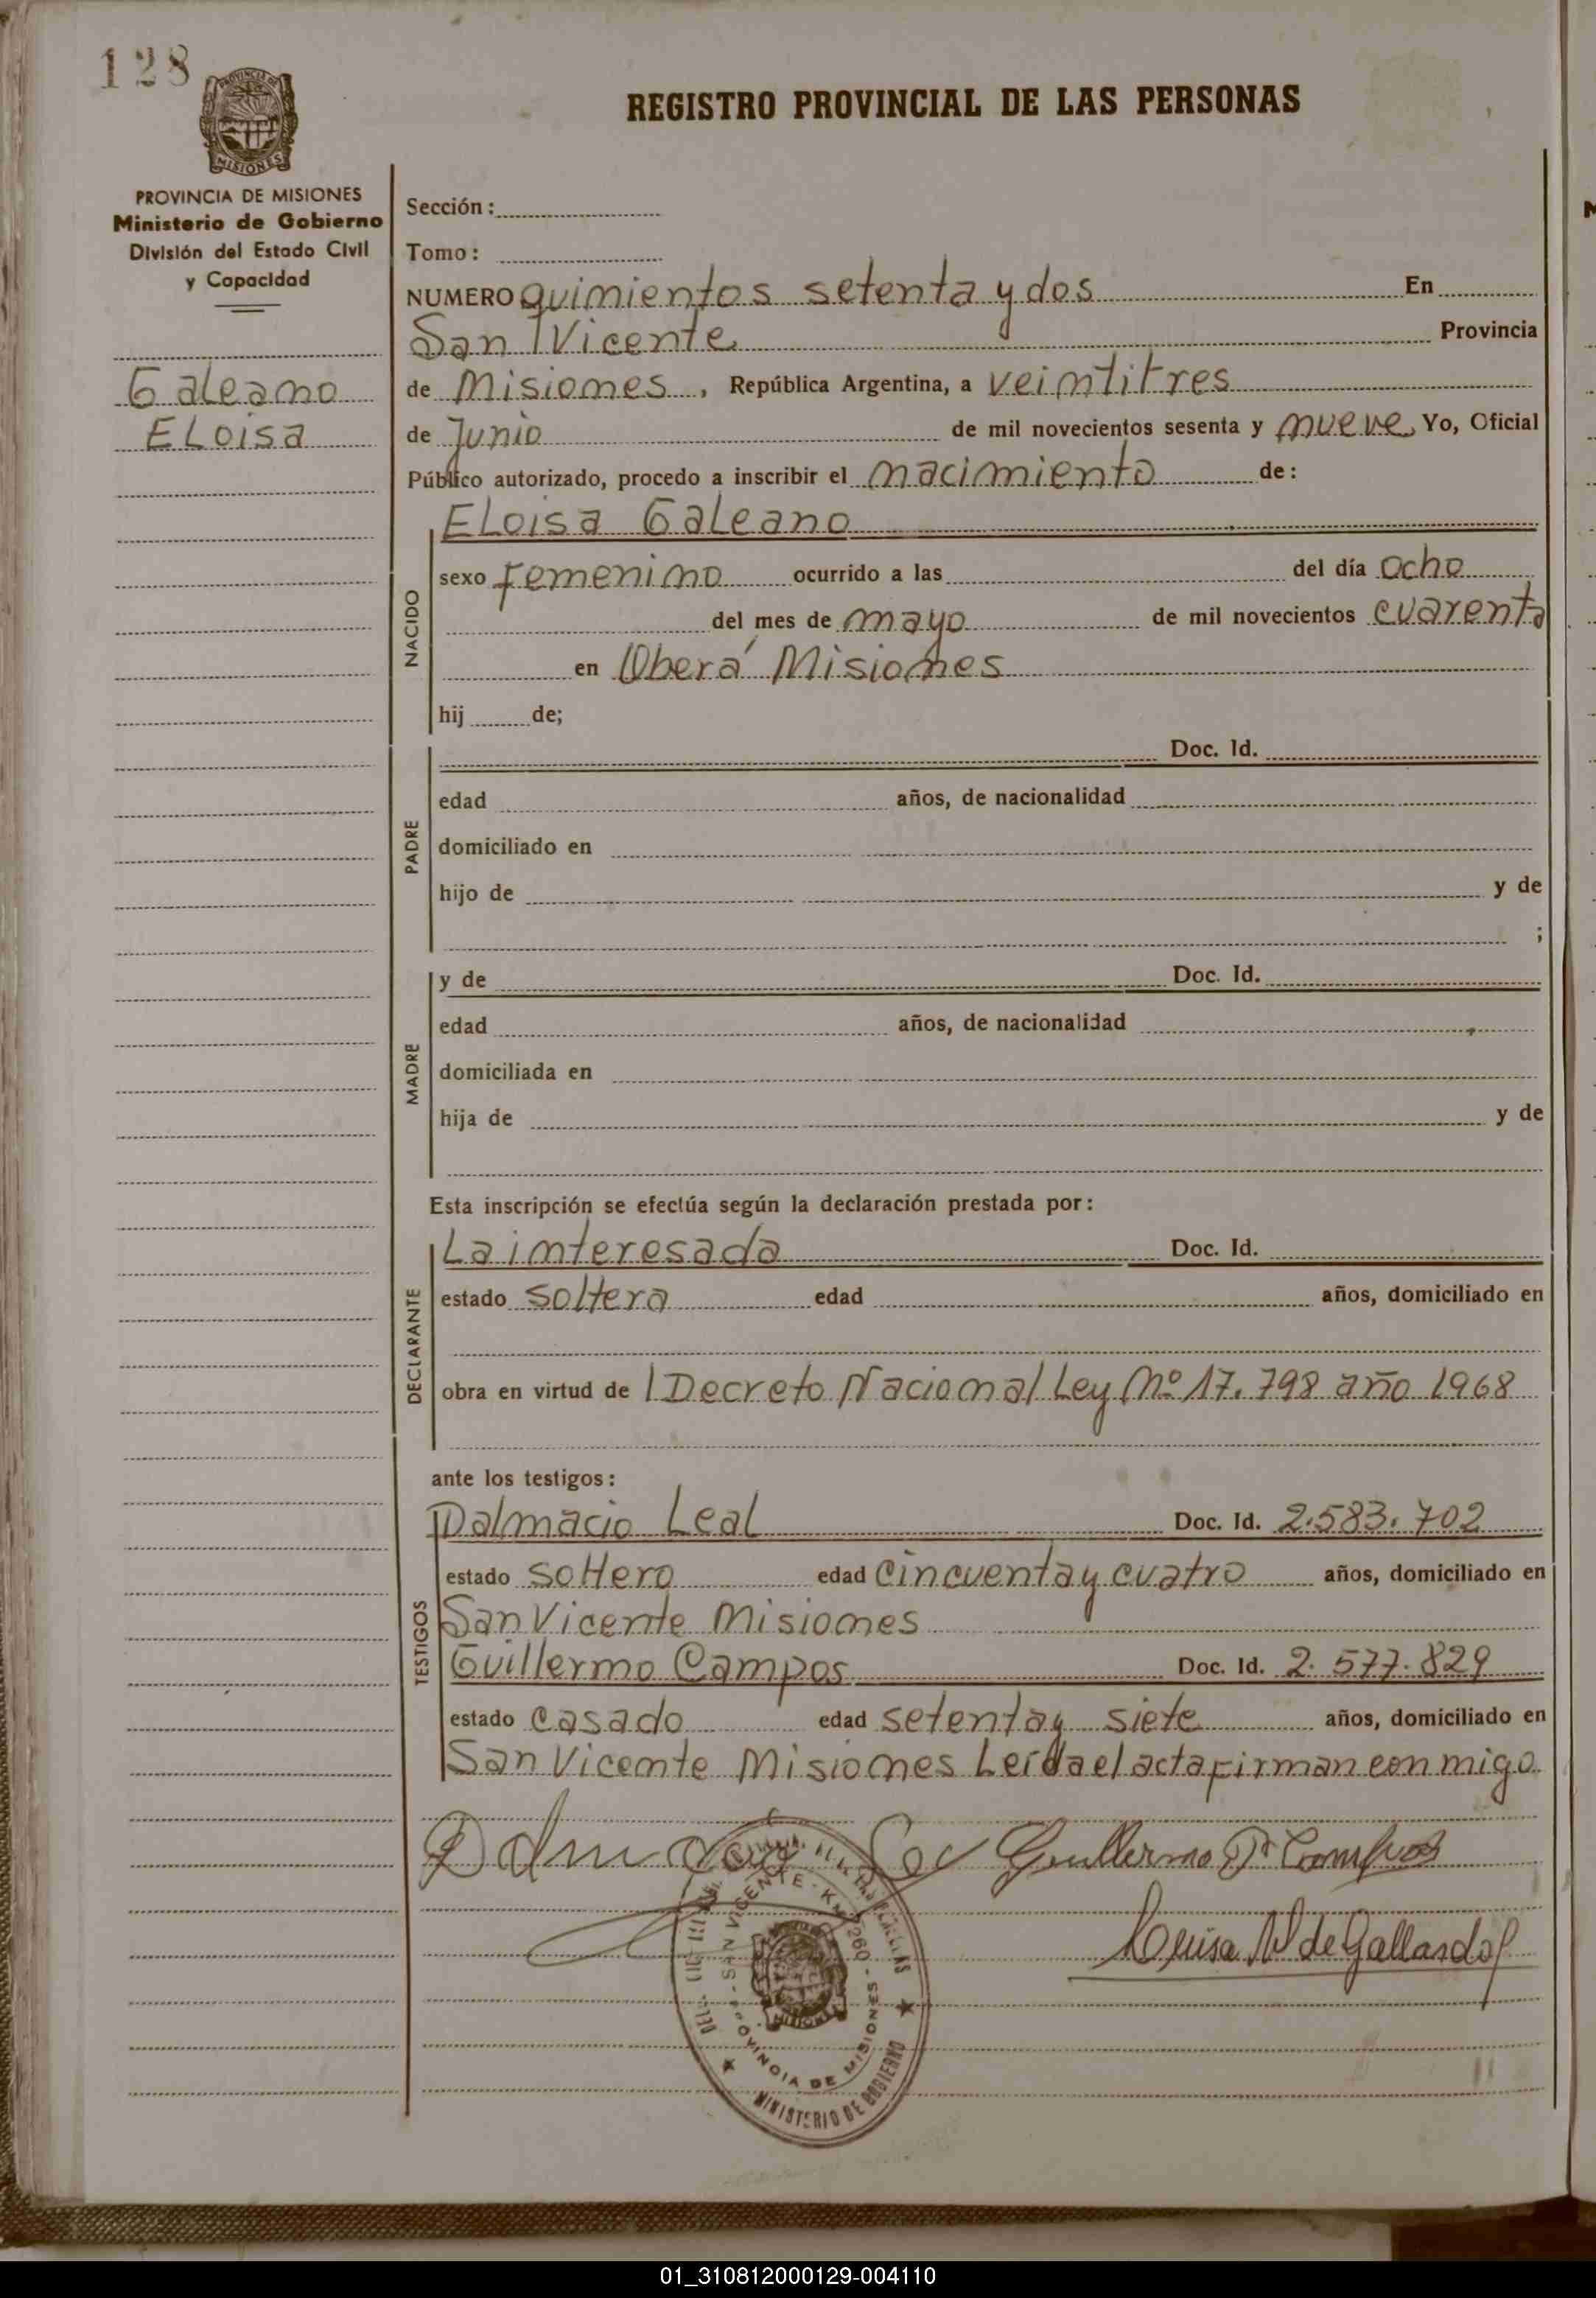 128
REGISTRO PROVINCIAL DE LAS PERSONAS
PROVINCIA DE MISIONES
MISIONES
PROVINCIA DE MISIONES
Ministerio de Gobierno
División del Estado Civil
y Capacidad
Galeano
ELoisa
Sección:
Tomo:
NUMERO quinientos setenta y dos En
San Vicente Provincia
de Misiones, República Argentina, a veintitres
de Junio de mil novecientos sesenta y nueve Yo, Oficial
Público autorizado, procedo a inscribir el nacimiento de:
NACIDO
ELoisa Galeano
sexo Femenino ocurrido a las del día ocho
del mes de mayo de mil novecientos cuarenta
en Oberá Misiones
hij de;
PADRE
Doc. Id.
edad años, de nacionalidad
domiciliado en
hijo de y de
;
MADRE
y de Doc. Id.
edad años, de nacionalidad
domiciliada en
hija de y de
Esta inscripción se efectúa según la declaración prestada por:
DECLARANTE
La interesada Doc. Id.
estado soltera edad años, domiciliado en
obra en virtud de Decreto Nacional Ley Nº 17.798 año 1968
ante los testigos:
TESTIGOS
Dalmacio Leal Doc. Id. 2.583.702
estado soltero edad cincuenta y cuatro años, domiciliado en
San Vicente Misiones
Guillermo Campos Doc. Id. 2.577.829
estado casado edad setenta y siete años, domiciliado en
San Vicente Misiones Leída el acta firman conmigo
Guillermo Campos
Luisa N de Gallardo
SAN VICENTE - KM 260 -
PROVINCIA DE MISIONES
MINISTERIO DE GOBIERNO
MISIONES
01_310812000129-004110